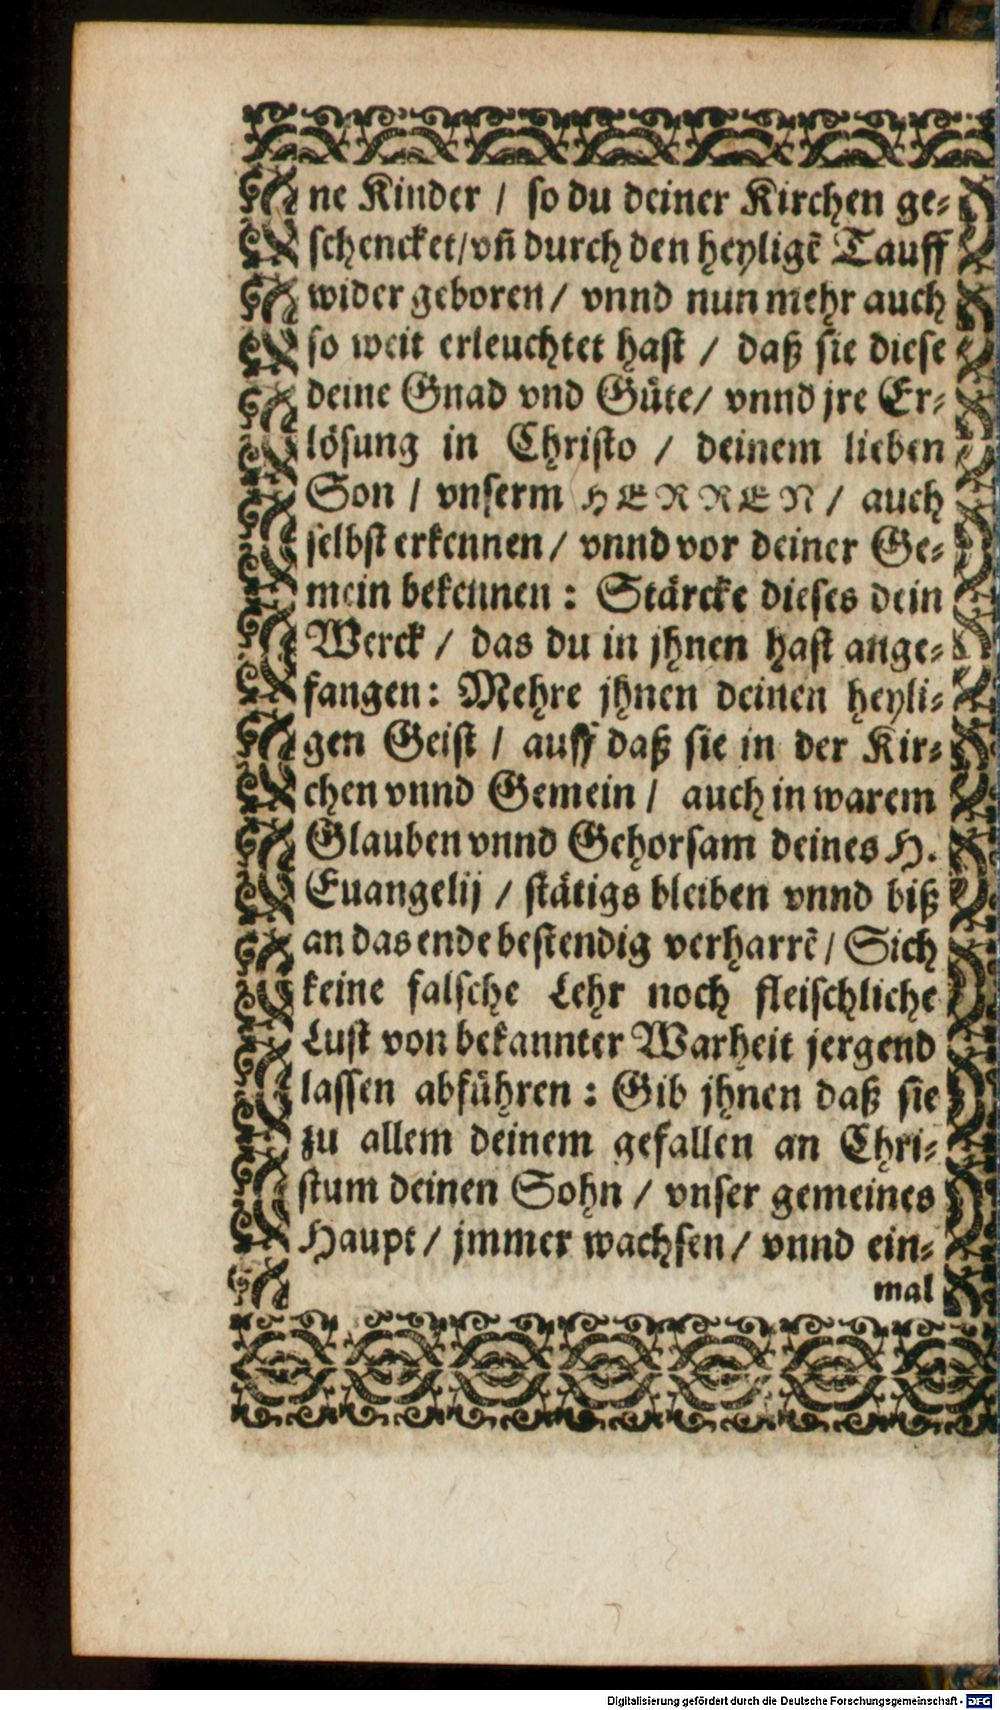 ne Kinder / so du deiner Kirchen ge-
schencket/vñ durch den heyligẽ Tauff
wider geboren / vnnd nun mehr auch
so weit erleuchtet hast / daß sie diese
deine Gnad vnd Güte/ vnnd jre Er-
lösung in Christo / deinem lieben
Son / vnserm HERREN / auch
selbst erkennen / vnnd vor deiner Ge-
mein bekennen : Stärcke dieses dein
Werck / das du in jhnen hast ange-
fangen: Mehre jhnen deinen heyli-
gen Geist / auff daß sie in der Kir-
chen vnnd Gemein / auch in warem
Glauben vnnd Gehorsam deines H.
Euangelij / stätigs bleiben vnnd biß
an das ende bestendig verharrẽ/ Sich
keine falsche Lehr noch fleischliche
Lust von bekannter Warheit jergend
lassen abführen : Gib jhnen daß sie
zu allem deinem gefallen an Chri-
stum deinen Sohn / vnser gemeines
Haupt / jmmer wachsen / vnnd ein-
mal
Digitalisierung gefördert durch die Deutsche Forschungsgemeinschaft - DFG